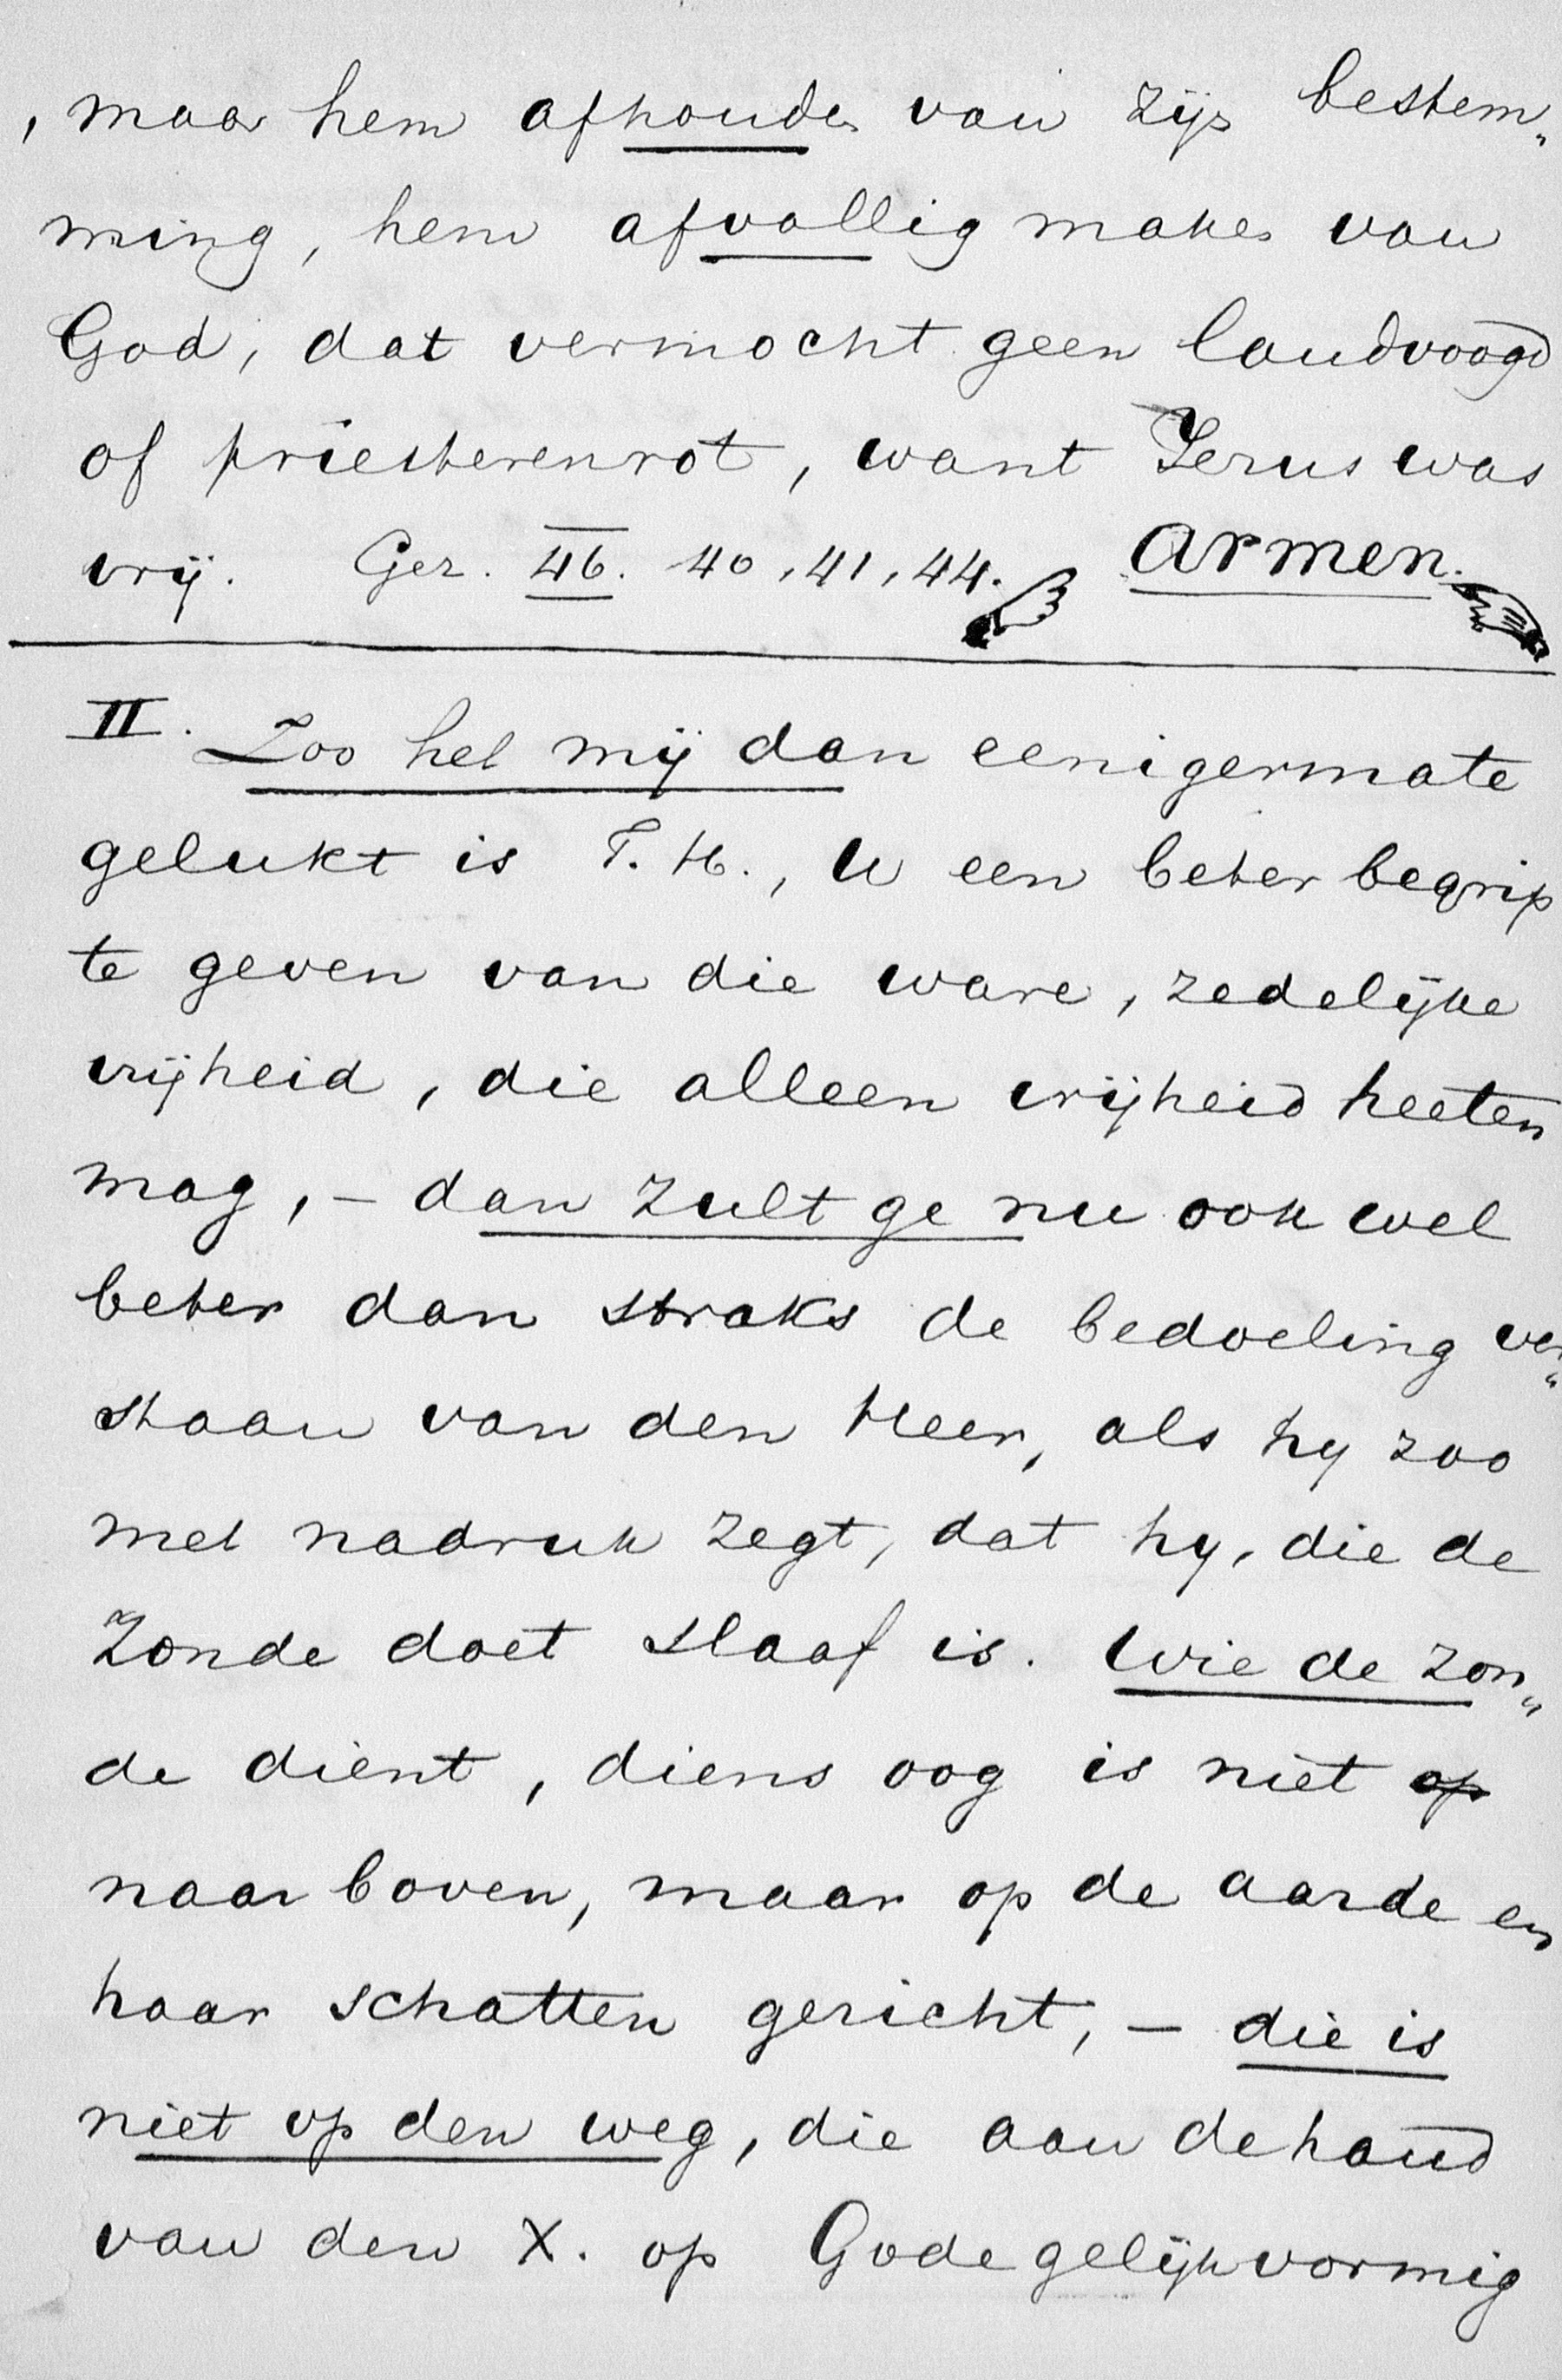 , maar hem afhouden van zijn bestem„
ming, hem afvallig maken van
God, dat vermocht geen landvoogd
of priesterenrot, want Jezus was
vrij. Gez. 46. 40, 41, 44. Armen.
II. Zoo het mij dan eenigermate
gelukt is T. H., U een beter begrip
te geven van die ware, zedelijke
vrijheid, die alleen vrijheid heeten
mag, - dan zult ge nu ook wel
beter dan straks de bedoeling ver„
staan van den Heer, als hy zoo
met nadruk zegt, dat hy, die de
Zonde doet slaaf is. Wie de zon„
de dient, diens oog is niet op
naar boven, maar op de aarde en
haar schatten gericht, - die is
niet op den weg, die aan de hand
van den X. op Gode gelijkvormig